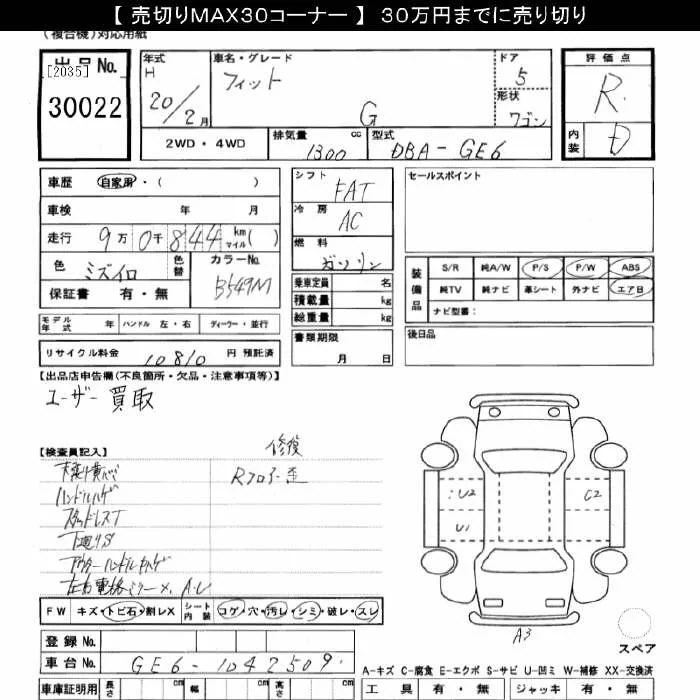 【 売切りMAX30コーナー 】 30万円までに売り切り
(複合機)対応用紙
出品No.
[2035]
30022
年式
H
20/2月
車名・グレード
フィット
G
ドア
5
形状
ワゴン
評価点
R.
内装
D
2WD ・ 4WD
排気量
1300
cc
型式
DBA-GE6
車歴
自家用・( )
車検 年 月
走行 9万 0千 844 km マイル ( )
色
ミズイロ
色替
カラーNo.
B549M
保証書 有・無
シフト
FAT
冷房
AC
燃料
ガソリン
乗車定員 名
積載量 kg
総重量 kg
セールスポイント
装備品
S/R 純A/W P/S P/W ABS
純TV 純ナビ 革シート 外ナビ エアB
ナビ型番:
モデル年式 年 ハンドル 左・右 ディーラー・並行
書類期限
月 日
後日品
リサイクル料金 10810 円 預託済
【出品店申告欄(不良箇所・欠品・注意事項等)】
ユーザー買取
【検査員記入】
修復
Rフロアー歪
ハンドルハゲ
スタッドレスT
下廻りS
アウターハンドルキハゲ
左右電格ミラー×, A・U
U2
U1
C2
A3
スペア
FW キズ・トビ石・割レX シート内装 コゲ・穴・汚レ・シミ・破レ・スレ
登録No.
車台No. GE6-1042509
車庫証明用 長さ cm 幅 cm 高さ cm
A-キズ C-腐食 E-エクボ S-サビ U-凹ミ W-補修 XX-交換済
工具 有・無 ジャッキ 有・無